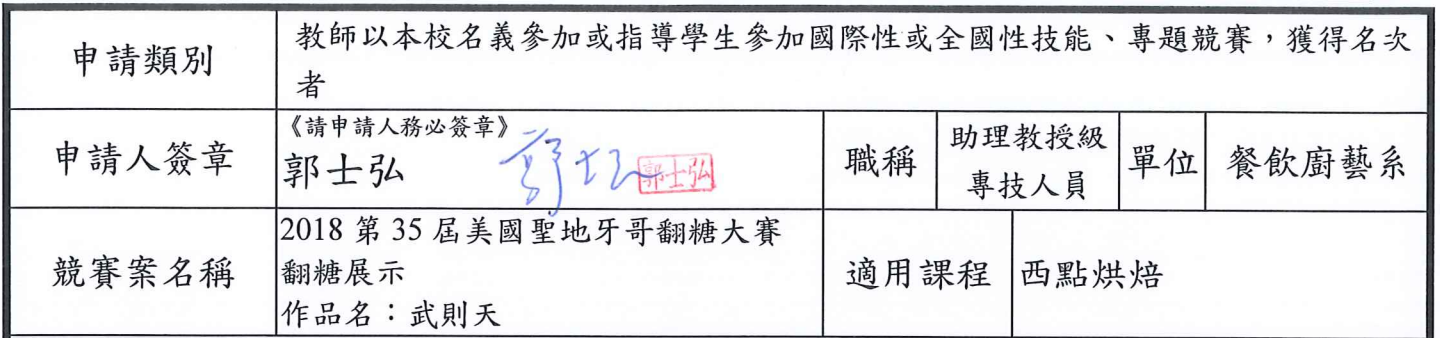 申請類別
教師以本校名義參加或指導學生參加國際性或全國性技能、專題競賽，獲得名次
者
申請人簽章
《請申請人務必簽章》
郭士弘
郭士弘
郭士弘
職稱
助理教授級
專技人員
單位
餐飲廚藝系
競賽案名稱
2018 第 35 屆美國聖地牙哥翻糖大賽
翻糖展示
作品名：武則天
適用課程
西點烘焙